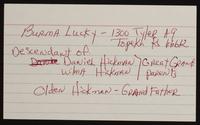 Burma Lucky - 1300 Tyler #9
Topeka Ks 66612
Descendant of
Daniel Hickman / Great Grand
Wina Hickman / parents
Olden Hickman - Grand Father